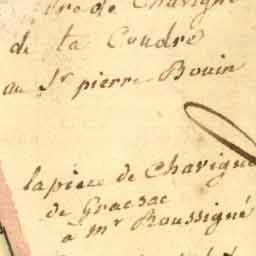 de Chavigne
de la Coudre
au Sr pierre Bouin
la piece de Chavigne
de Gracsac
à mr Roussigné